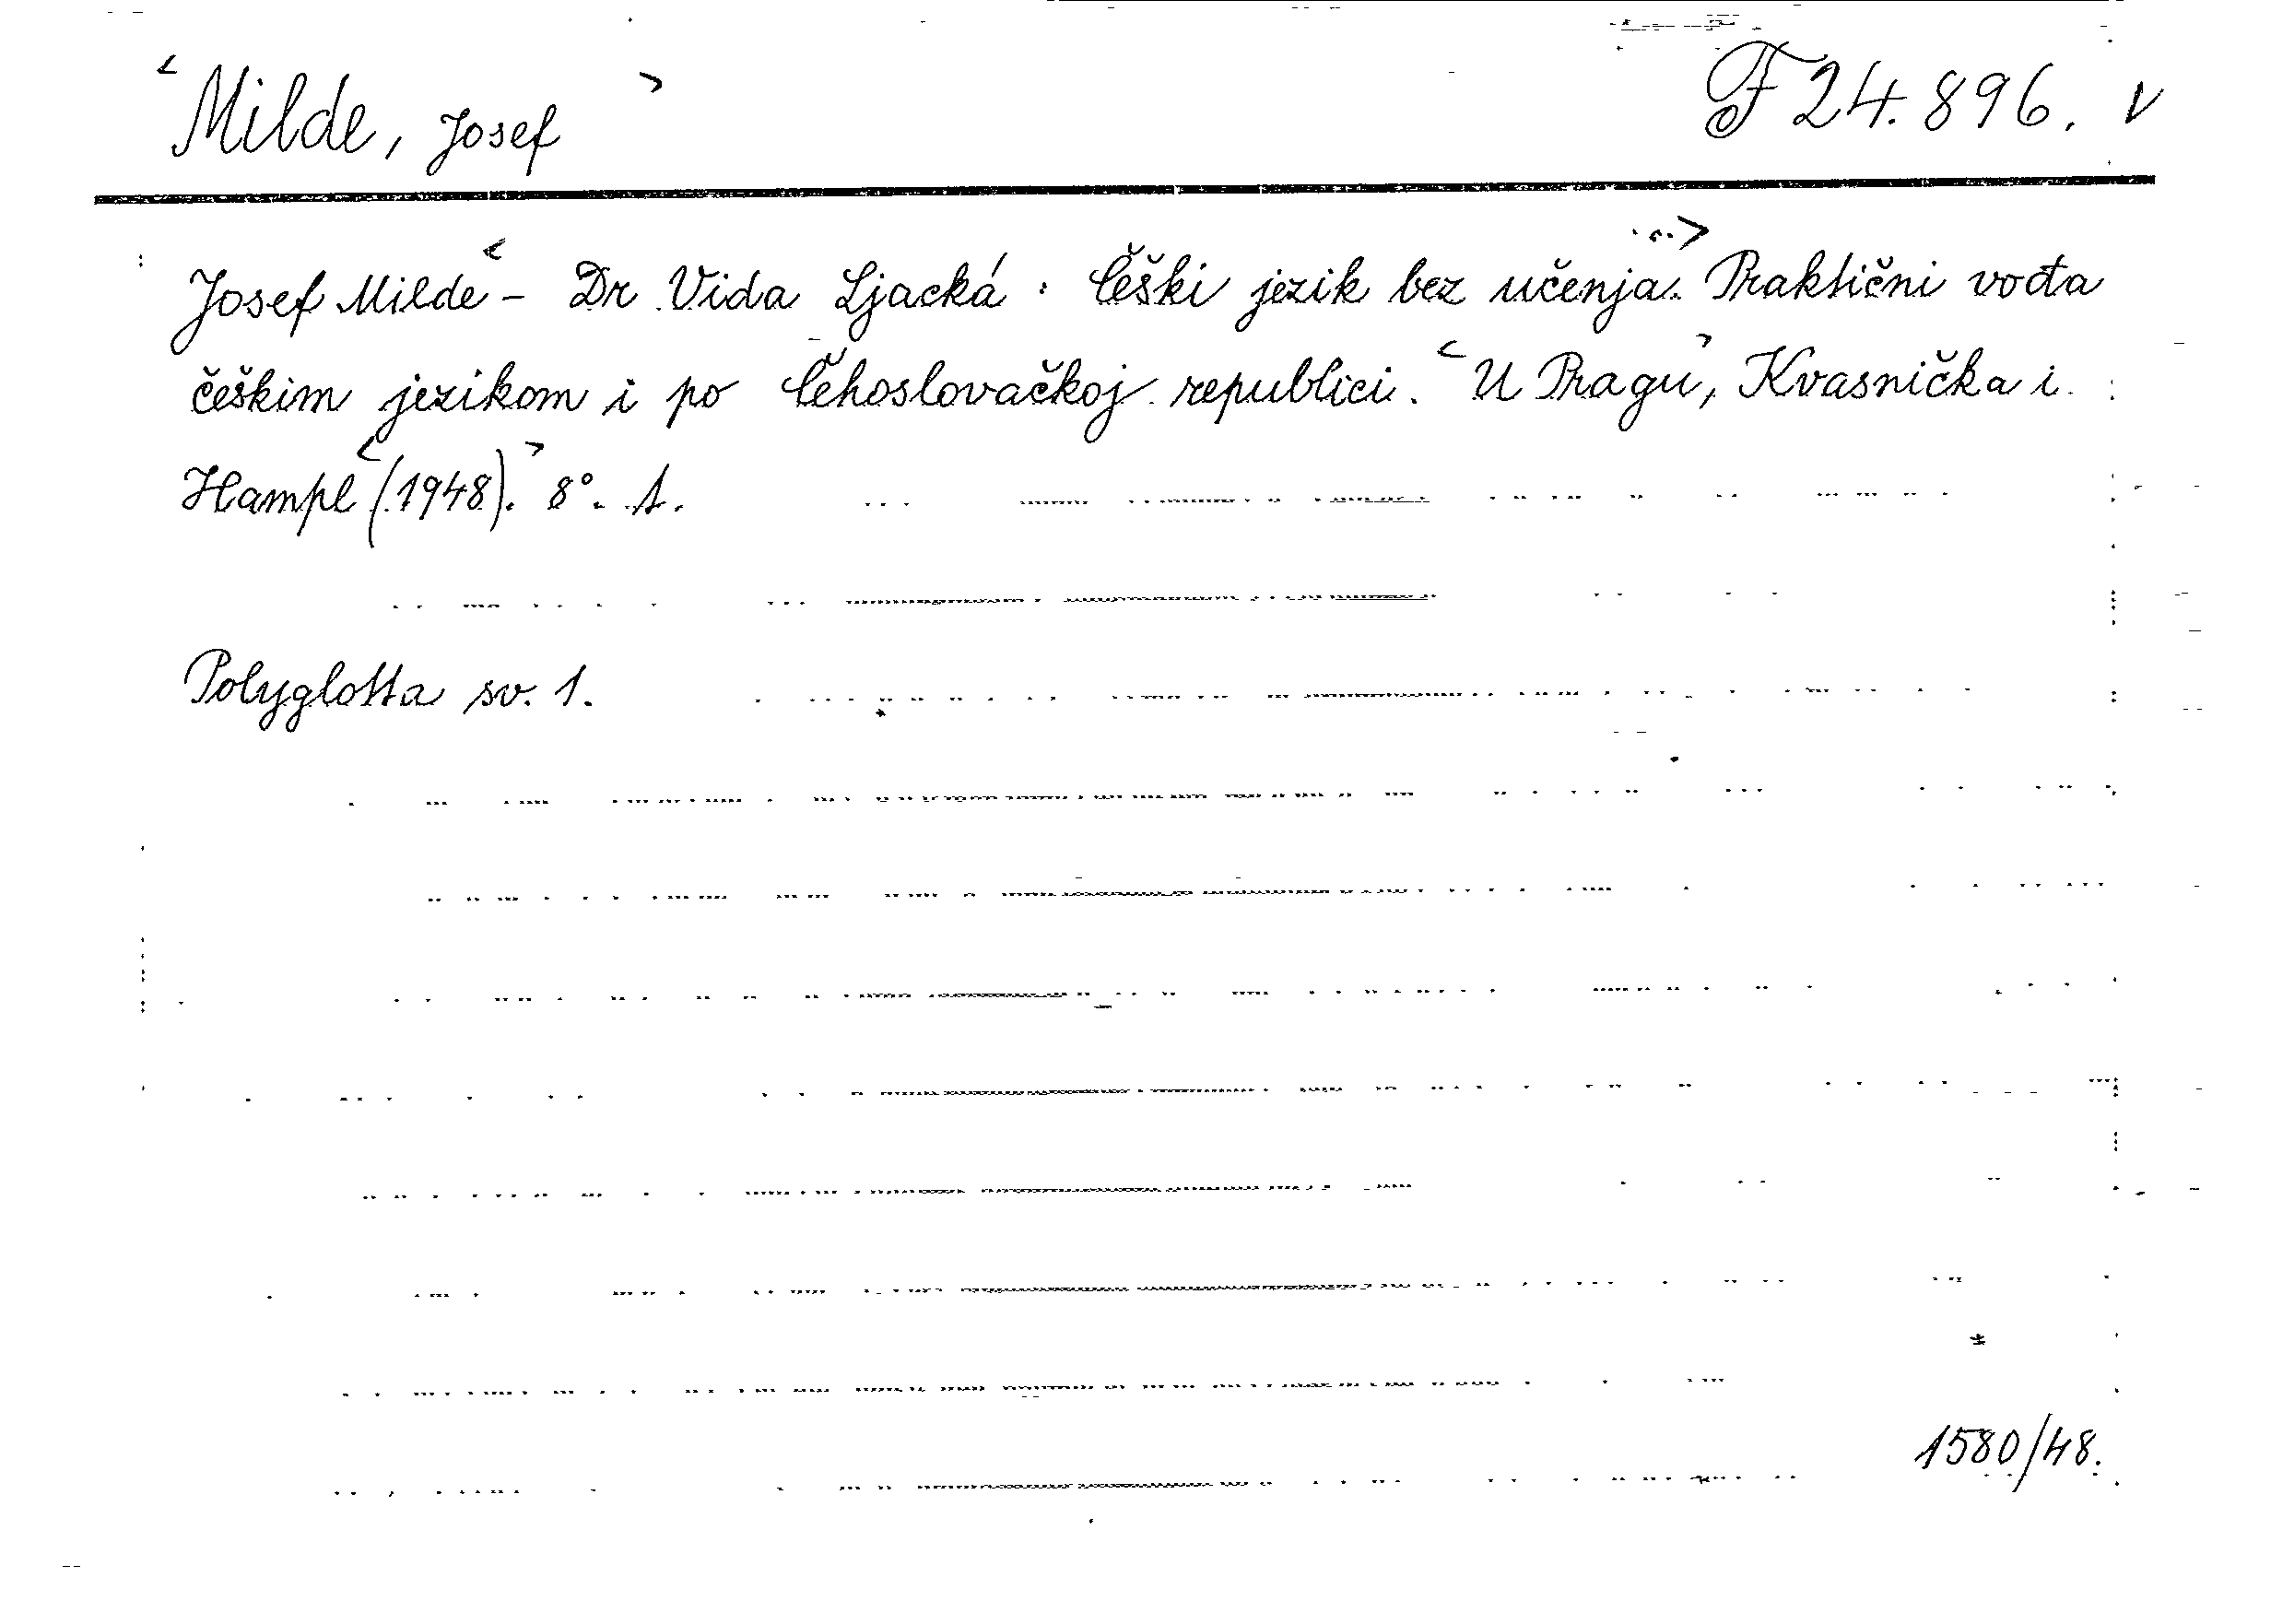 <Milde, Josef> F 24.896. V
Josef Milde <- Dr Vida Ljacká: Češki jezik bez učenja...> Praktični vođa
češkim jezikom i po Čehoslovačkoj republici. <U Pragu>, Kvasnička i
Hampl <(1948).> 8°. 1.
Polyglotta sv. 1.
1580/48.